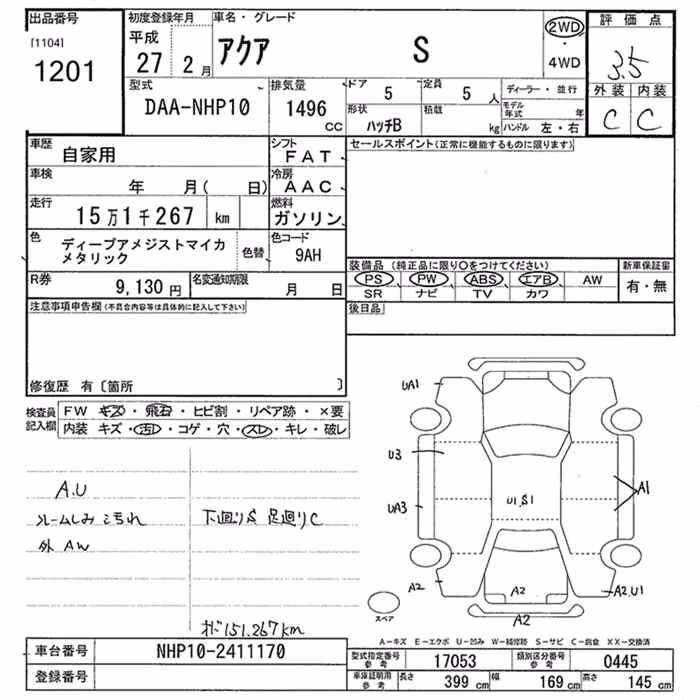 出品番号
[1104]
1201
初度登録年月
平成
27 2月
車名・グレード
アクア S
2WD
・
4WD
評価点
3.5
外装 内装
C C
型式
DAA-NHP10
排気量
1496
CC
ドア
5
定員
5 人
形状
ハッチB
積載
kg
ディーラー・並行
モデル年式 年
ハンドル 左・右
車歴
自家用
シフト
FAT
車検
年 月( 日)
冷房
AAC
走行
15万1千267 km
燃料
ガソリン
色
ディープアメジストマイカ
メタリック
色替
色コード
9AH
R券
9,130 円
名変通知期限
月 日
セールスポイント(正常に機能するものに限ります)
装備品 (純正品に限り○をつけてください)
PS PW ABS エアB AW
SR ナビ TV カワ
新車保証書
有・無
後日品
注意事項申告欄(不具合内容等は具体的に記入して下さい)
修復歴 有〔箇所 〕
検査員
記入欄
FW キズ・飛石・ヒビ割・リペア跡・×要
内装 キズ・汚れ・コゲ・穴・スレ・キレ・破レ
A.U
ルームしみ こ汚れ
外 AW
下廻りS 足廻りC
メーター151.267km
UA1
U3
UA3
A2
U1.S1
A1
A2
A2.U1
A2
スペア
A-キズ E-エクボ U-凹み W-補修跡 S-サビ C-腐食 XX-交換済
車台番号
NHP10-2411170
登録番号
型式指定番号
参考
17053
類別区分番号
参考
0445
車庫証明用
参考
長さ
399 cm
幅
169 cm
高さ
145 cm